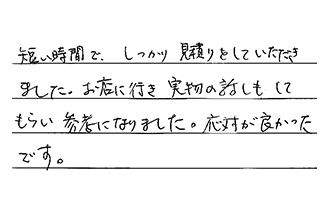 短い時間で、しっかり見積りをしていただき
ました。お店に行き実物の話しもして
もらい参考になりました。応対が良かった
です。